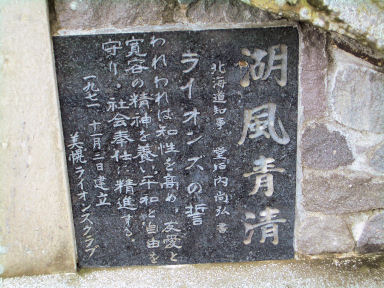 湖風青清
北海道知事 堂垣内尚弘 書
ライオンズの誓
われわれは知性を高め、友愛と
寛容の精神を養い平和と自由を
守り、社会奉仕に精進する。
一九七一 十一月二日建立
美幌ライオンズクラブ